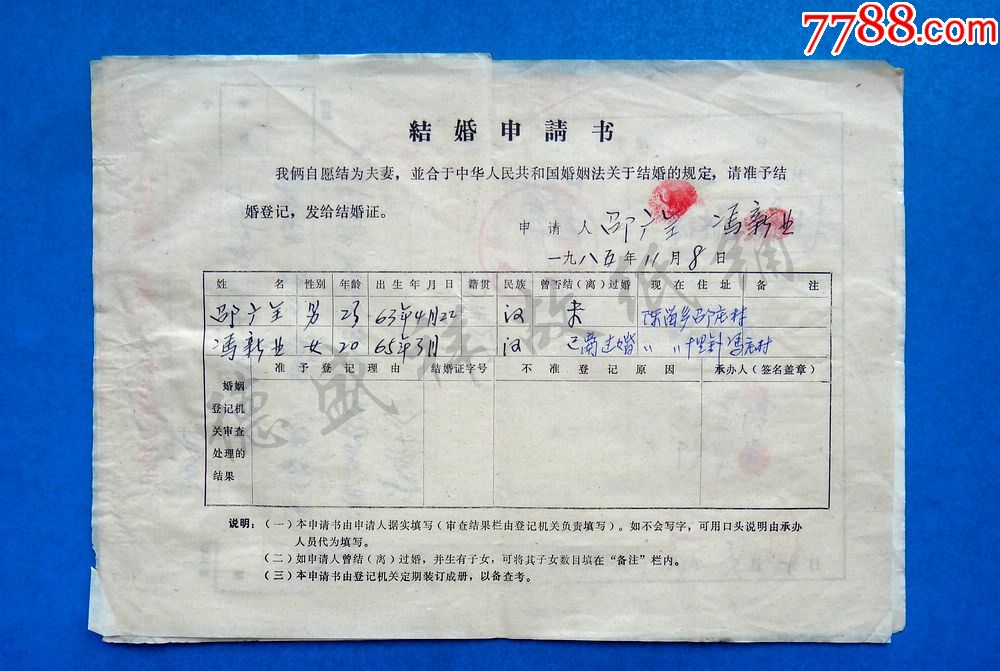 7788.com
結婚申請书
我俩自愿结为夫妻，並合于中华人民共和国婚姻法关于结婚的规定，请准予结
婚登记，发给结婚证。
申请人 邵广 冯新业
一九八五年11月8日
姓名 性别 年龄 出生年月日 籍贯 民族 曾否结(离)过婚 现在住址 备注
邵广 男 23 63年4月22 汉 未 邵庄村
冯新业 女 20 65年3月 汉 已离过婚 〃 〃 冯庄村
准予登记理由 结婚证字号 不准登记原因 承办人(签名盖章)
婚姻
登记机
关审查
处理的
结果
说明：(一)本申请书由申请人据实填写(审查结果栏由登记机关负责填写)。如不会写字，可用口头说明由承办
人员代为填写。
(二)如申请人曾结(离)过婚，并生有子女，可将其子女数目填在“备注”栏内。
(三)本申请书由登记机关定期装订成册，以备查考。
德盛祥故纸铺